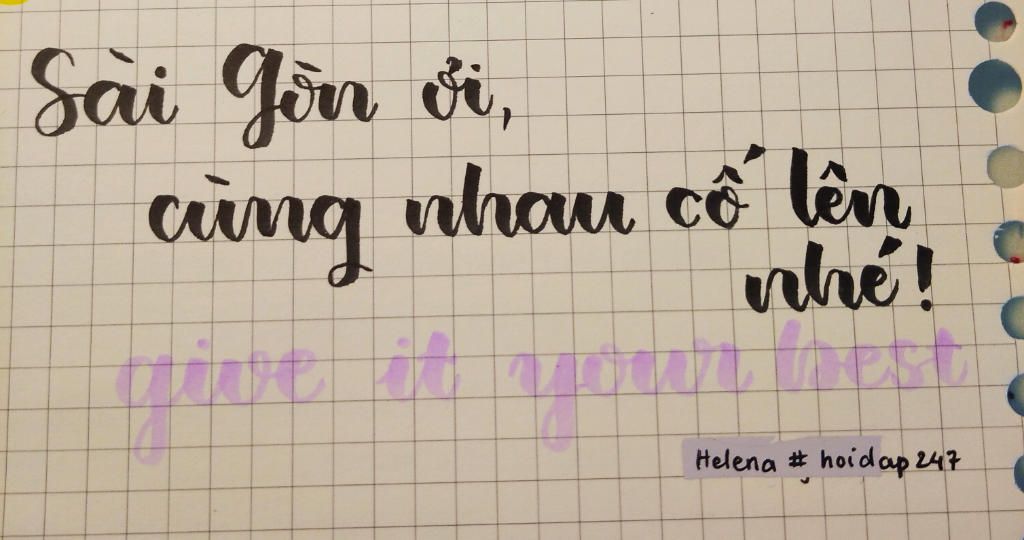 Sài Gòn ơi,
cùng nhau cố lên
nhé!
give it your best
Helena # hoidap247